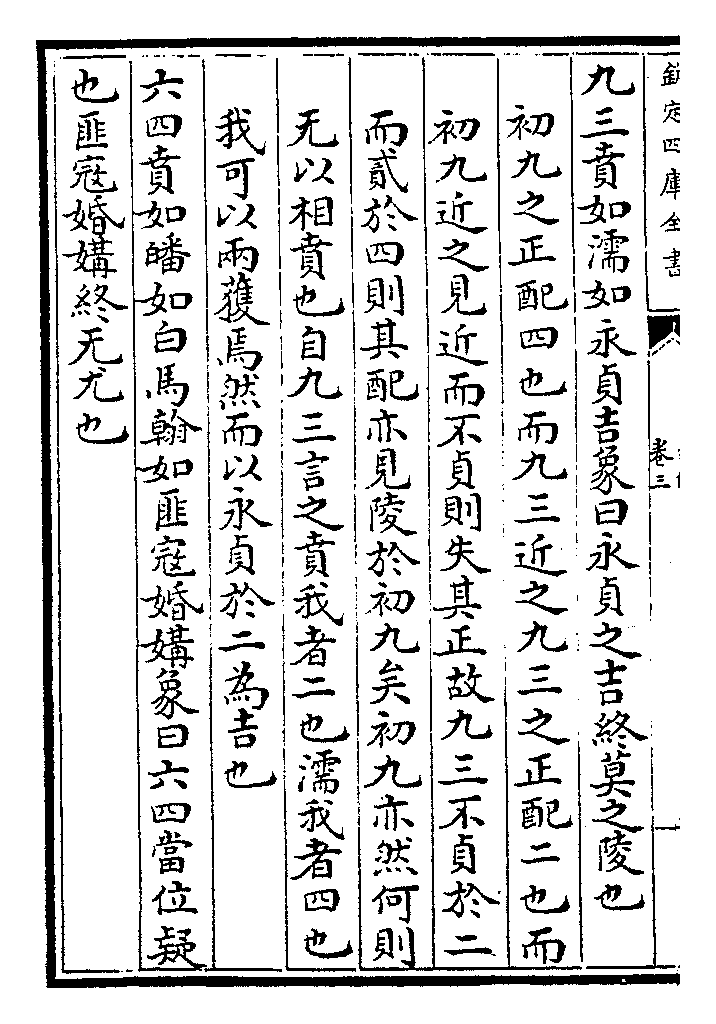 欽定四庫全書
卷三
九三賁如濡如永貞吉象曰永貞之吉終莫之陵也
初九之正配四也而九三近之九三之正配二也而
初九近之見近而不貞則失其正故九三不貞於二
而貳於四則其配亦見陵於初九矣初九亦然何則
无以相賁也自九三言之賁我者二也濡我者四也
我可以兩獲焉然而以永貞於二為吉也
六四賁如皤如白馬翰如匪寇婚媾象曰六四當位疑
也匪寇婚媾終无尤也